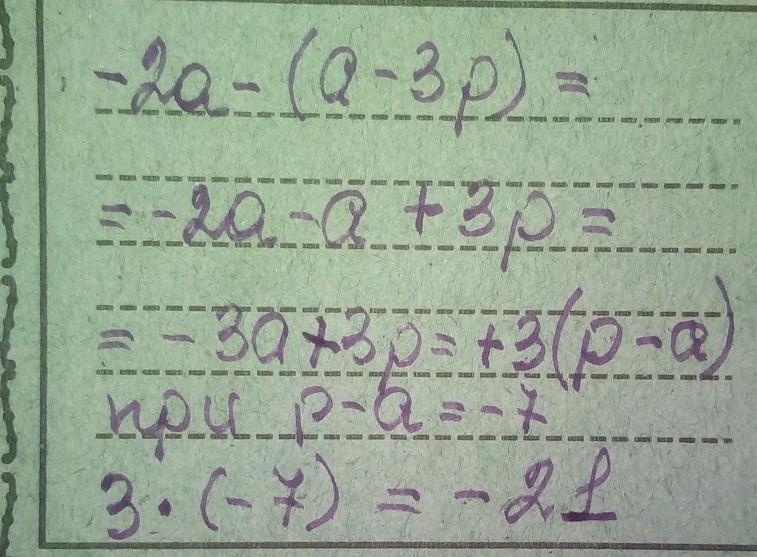 -2a-(a-3p)=
=-2a-a+3p=
=-3a+3p=+3(p-a)
при p-a=-7
3·(-7)=-21